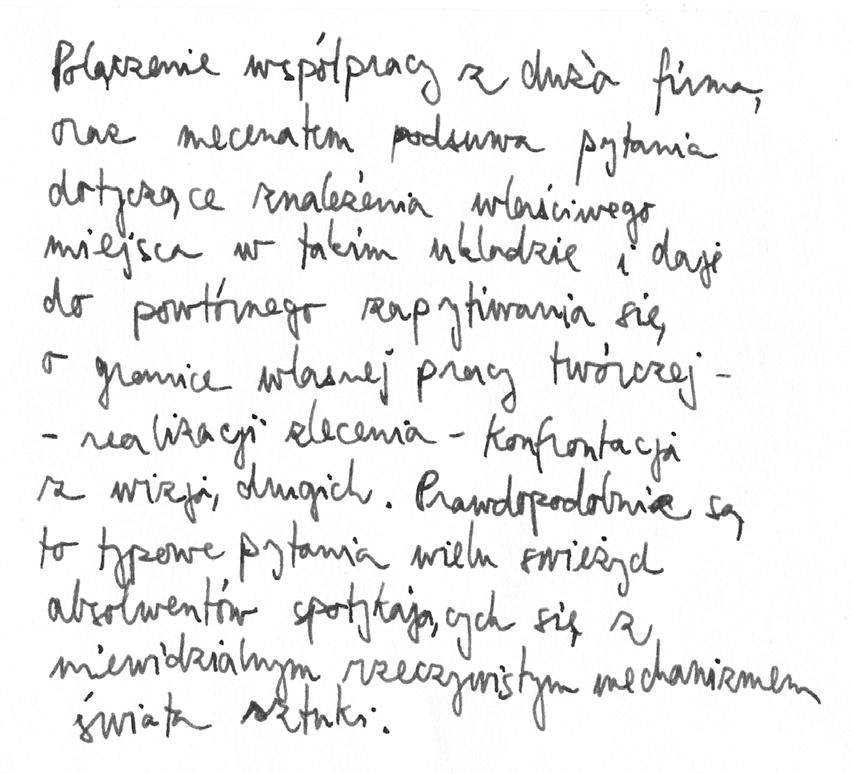 Połączenie współpracy z dużą firmą,
oraz mecenatem podsuwa pytania
dotyczące znalezienia właściwego
miejsca w takim układzie i daje
do powtórnego zapytiwania się
o granice własnej pracy twórczej -
- realizacji zlecenia - konfrontacja
z wizją drugich. Prawdopodobnie są
to typowe pytania wielu świeżych
absolwentów spotykających się z
niewidzialnym rzeczywistym mechanizmem
świata sztuki.